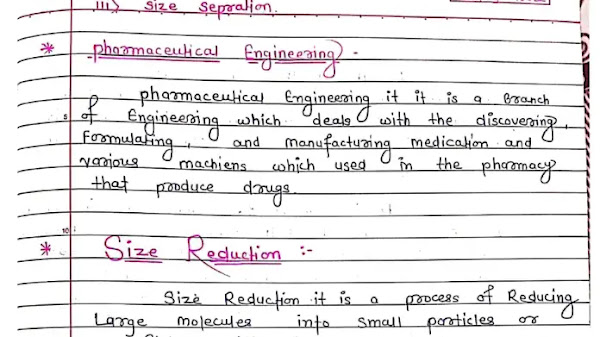 iii) Size Sepration.
* pharmaceutical Engineering -
pharmaceutical Engineering it it is a Branch
5 of Engineering which deals with the discovering,
Formulating, and manufacturing medication and
various machiens which used in the pharmacy
that produce drugs.
10
* Size Reduction :-
Size Reduction it is a process of Reducing
Large molecules into small particles or